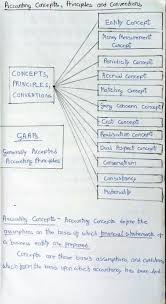 Accounting Concepts, Principles and Conventions
Entity Concept
Money Measurement
Concept
Periodicity Concept
Accrual Concept
Matching Concept
Going Concern Concept
Cost Concept
Realisation Concept
Dual Aspect Concept
Conservatism
Consistency
Materiality
CONCEPTS,
PRINCIPLES,
CONVENTIONS
GAAP
Generally Accepted
Accounting Principles
Accounting Concepts - Accounting Concepts define the
assumptions on the basis of which financial statements of
a business entity are prepared.
Concepts are those basic assumptions and conditions
which form the basis upon which accountancy has been laid